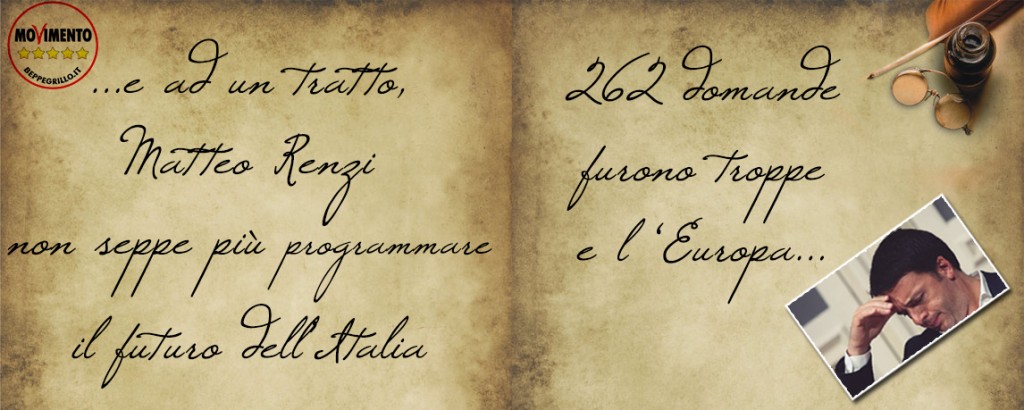 MOVIMENTO
BEPPEGRILLO.IT
...e ad un tratto,
Matteo Renzi
non seppe più programmare
il futuro dell'Italia
262 domande
furono troppe
e l 'Europa...